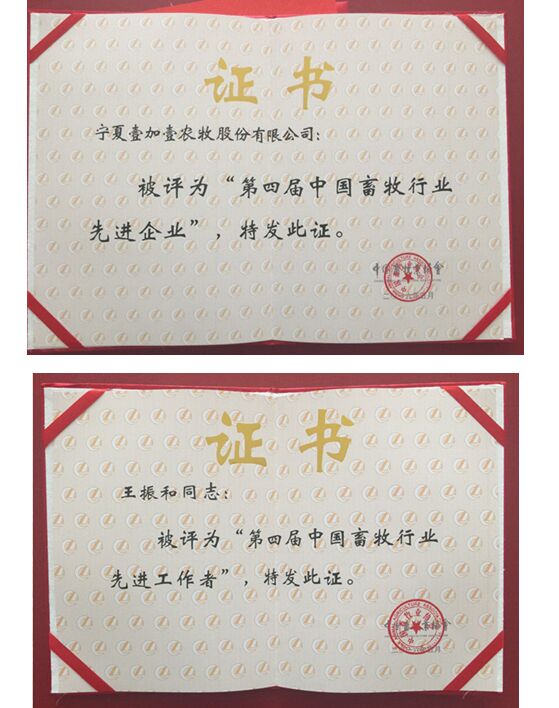 证书
宁夏壹加壹农牧股份有限公司：
被评为“第四届中国畜牧行业
先进企业”，特发此证。
证书
王振和同志：
被评为“第四届中国畜牧行业
先进工作者”，特发此证。